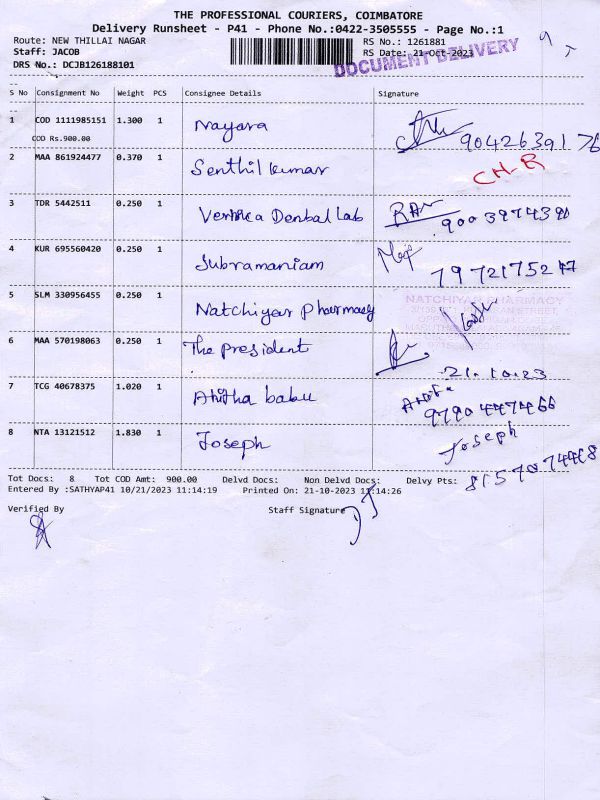 THE PROFESSIONAL COURIERS, COIMBATORE
Delivery Runsheet - P41 - Phone No.:0422-3505555 - Page No.:1
Route: NEW THILLAI NAGAR RS No.: 1261881
Staff: JACOB RS Date: 21-Oct-2023
DRS No.: DCJB126188101
DOCUMENT DELIVERY
S No Consignment No Weight PCS Consignee Details Signature
1 COD 1111985151 1.300 1 Nayara 9042639176
COD Rs.900.00
2 MAA 861924477 0.370 1 Senthil kumar CH-R
3 TDR 5442511 0.250 1 Denbal Lab
4 KUR 695560420 0.250 1 Subramaniam 7972175247
5 SLM 330956455 0.250 1 Natchiyar pharmacy NATCHIYAR PHARMACY
6 MAA 570198063 0.250 1 The president
21.10.23
7 TCG 40678375 1.020 1 Anitha babu
9790447466
8 NTA 13121512 1.830 1 Joseph Joseph
Tot Docs: 8 Tot COD Amt: 900.00 Delvd Docs: Non Delvd Docs: Delvy Pts:
Entered By :SATHYAP41 10/21/2023 11:14:19 Printed On: 21-10-2023 11:14:26
Verified By Staff Signature